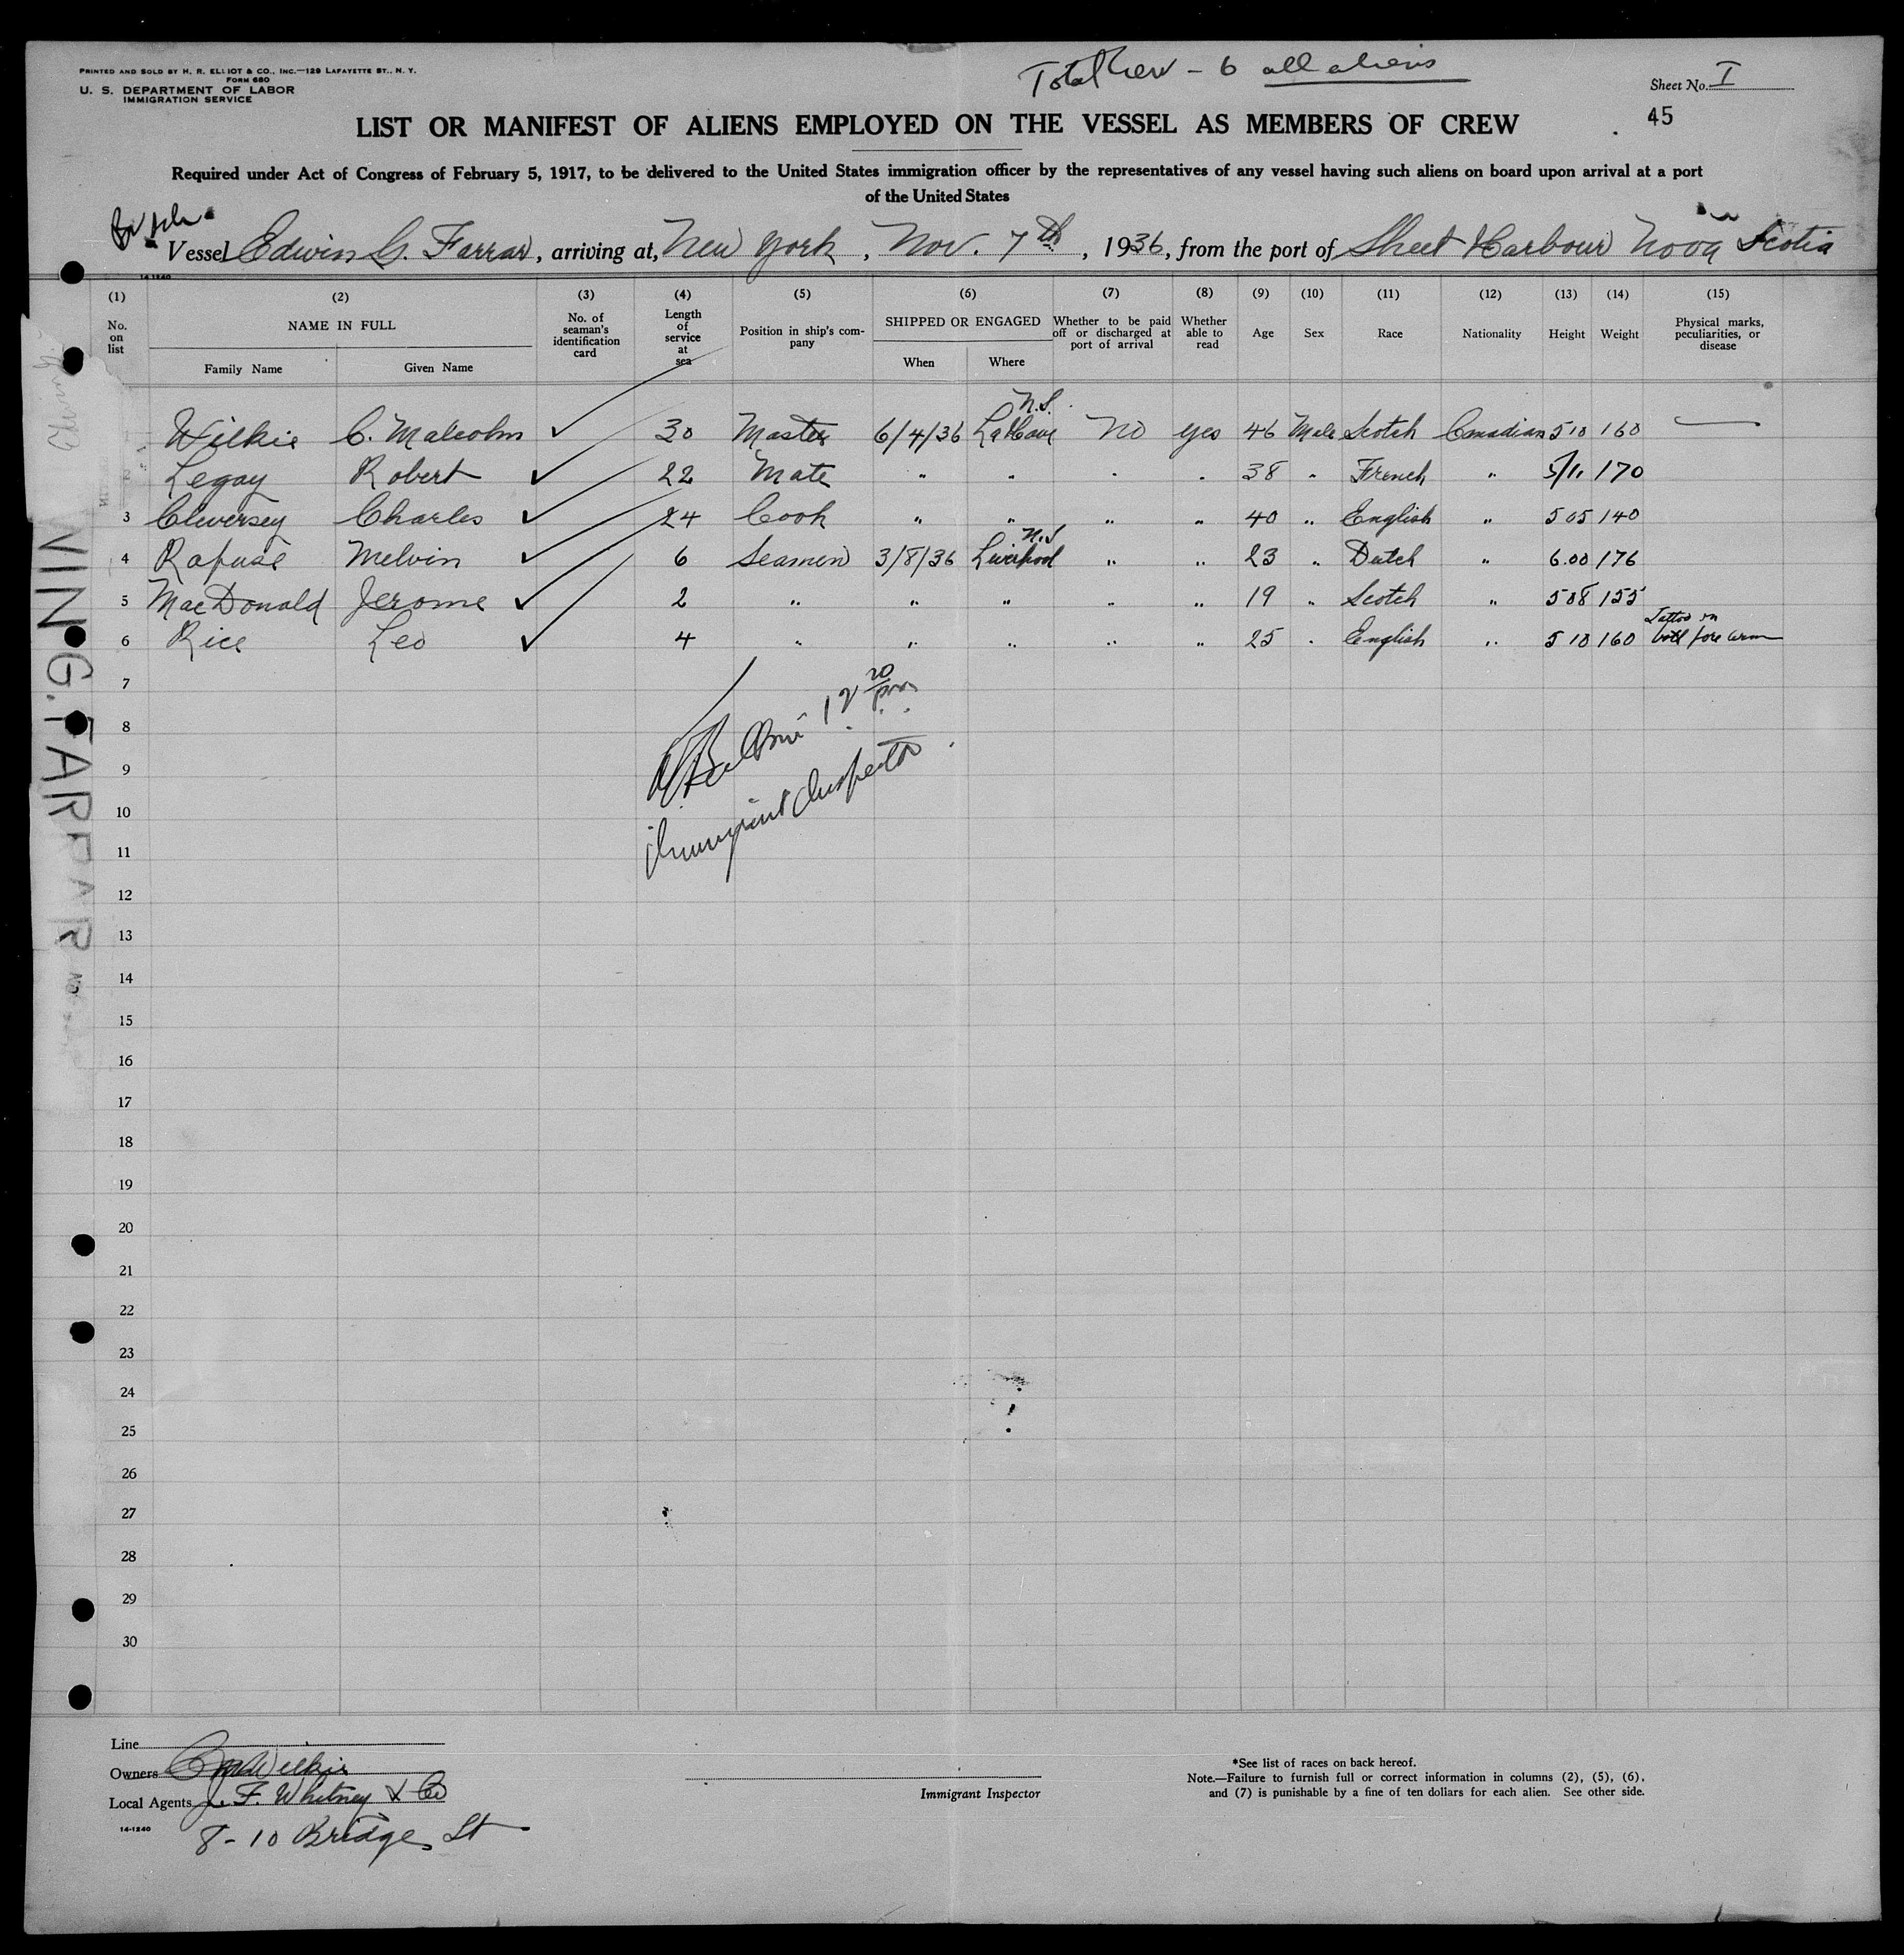 PRINTED AND SOLD BY H. R. ELLIOT & CO., INC.—129 LAFAYETTE ST., N. Y.
FORM 680
U. S. DEPARTMENT OF LABOR
IMMIGRATION SERVICE
Total Crew - 6 all aliens
Sheet No. I
45
LIST OR MANIFEST OF ALIENS EMPLOYED ON THE VESSEL AS MEMBERS OF CREW
Required under Act of Congress of February 5, 1917, to be delivered to the United States immigration officer by the representatives of any vessel having such aliens on board upon arrival at a port
of the United States
Vessel Edwin G. Farrar, arriving at, New York, Nov. 7th, 1936, from the port of Sheet Harbour Nova Scotia
14-1240
(1) (2) (3) (4) (5) (6) (7) (8) (9) (10) (11) (12) (13) (14) (15)
No. on list
NAME IN FULL
Family Name Given Name
No. of seaman's identification card
Length of service at sea
Position in ship's company
SHIPPED OR ENGAGED
When Where
Whether to be paid off or discharged at port of arrival
Whether able to read
Age Sex Race Nationality Height Weight
Physical marks, peculiarities, or disease
N.S.
1 Wilkie C. Malcolm ✓ 30 Master 6/4/36 LaHave No yes 46 Male Scotch Canadian 5 10 160 —
2 Legay Robert ✓ 22 Mate " " " " 38 " French " 5/11 170
3 Cleversey Charles ✓ 24 Cook " " " " 40 " English " 5 05 140
N.S
4 Rafuse Melvin ✓ 6 Seamen 3/8/36 Liverpool " " 23 " Dutch " 6.00 176
5 MacDonald Jerome ✓ 2 " " " " " 19 " Scotch " 5 08 155
6 Rice Leo ✓ 4 " " " " " 25 " English " 5 10 160 Tattoo on both fore arm
7
8
9
10
11
12
13
14
15
16
17
18
19
20
21
22
23
24
25
26
27
28
29
30
12 20 pm
Immigrant Inspector
WIN G. FARRAR
Line
Owners C M Wilkie
Local Agents J. F. Whitney & Co
14-1240
8-10 Bridge St
Immigrant Inspector
*See list of races on back hereof.
Note.—Failure to furnish full or correct information in columns (2), (5), (6),
and (7) is punishable by a fine of ten dollars for each alien. See other side.